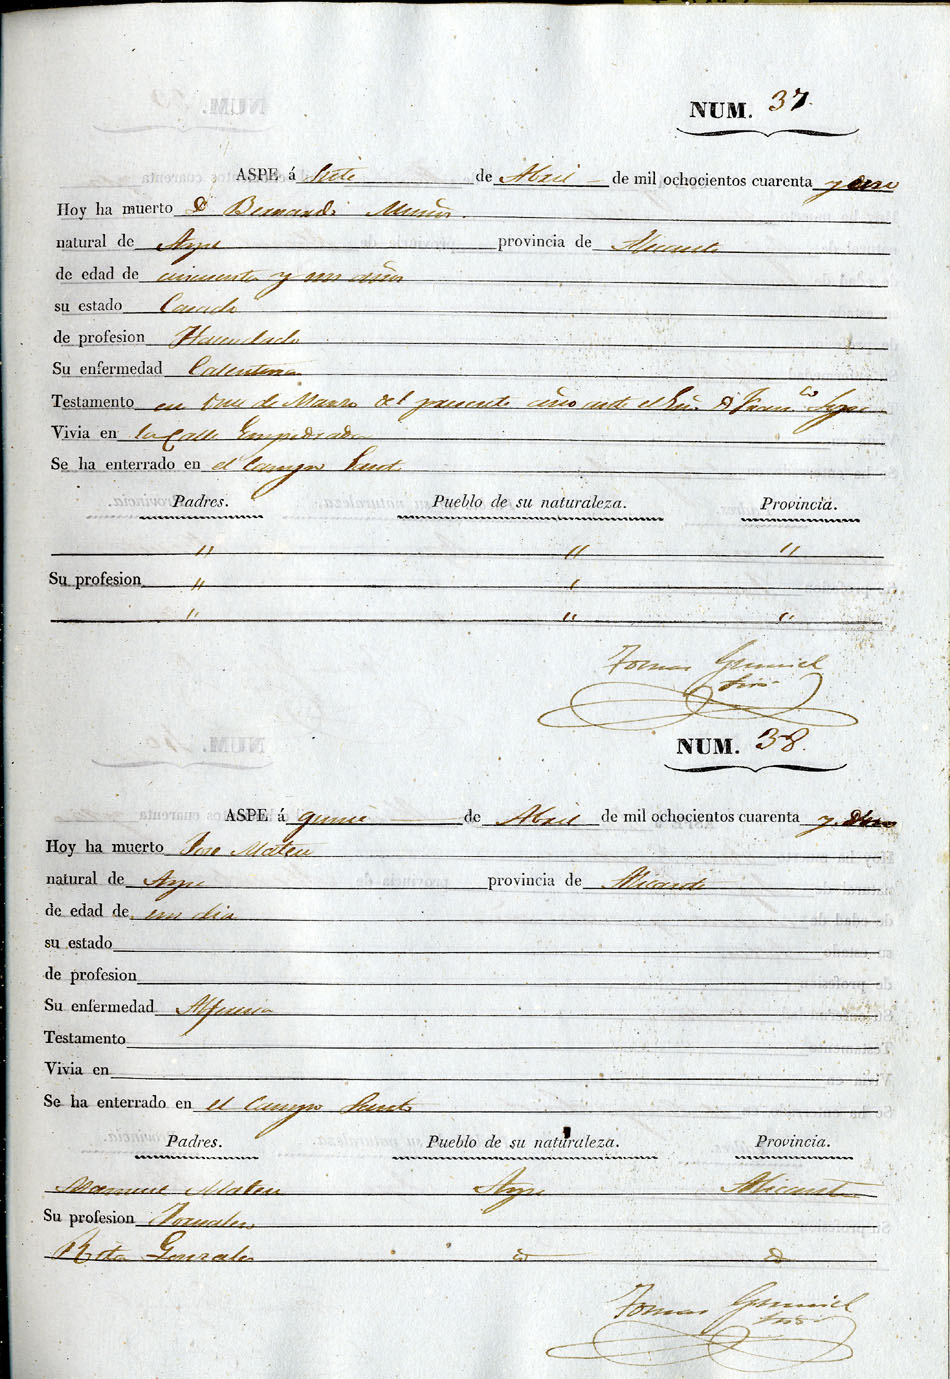 NUM. 37.
ASPE á Siete de Abril de mil ochocientos cuarenta y
Hoy ha muerto D. Bernardo Muñoz.
natural de Aspe provincia de Alicante
de edad de cincuenta y un años
su estado Casado
de profesion Hacendado
Su enfermedad Calentura
Testamento en de Marzo del presente año ante el D. Franco.
Vivia en la Calle Empedrada
Se ha enterrado en el Campo Santo
Padres. Pueblo de su naturaleza. Provincia.
" " "
Su profesion " "
" " "
Tomas
NUM. 38.
ASPE á quince de Abril de mil ochocientos cuarenta y
Hoy ha muerto Jose Mateu
natural de Aspe provincia de Alicante
de edad de un dia
su estado
de profesion
Su enfermedad Alferecia
Testamento
Vivia en
Se ha enterrado en el Campo Santo
Padres. Pueblo de su naturaleza. Provincia.
Manuel Mateu Aspe Alicante
Su profesion Jornalero
Rita Gonzales
Tomas